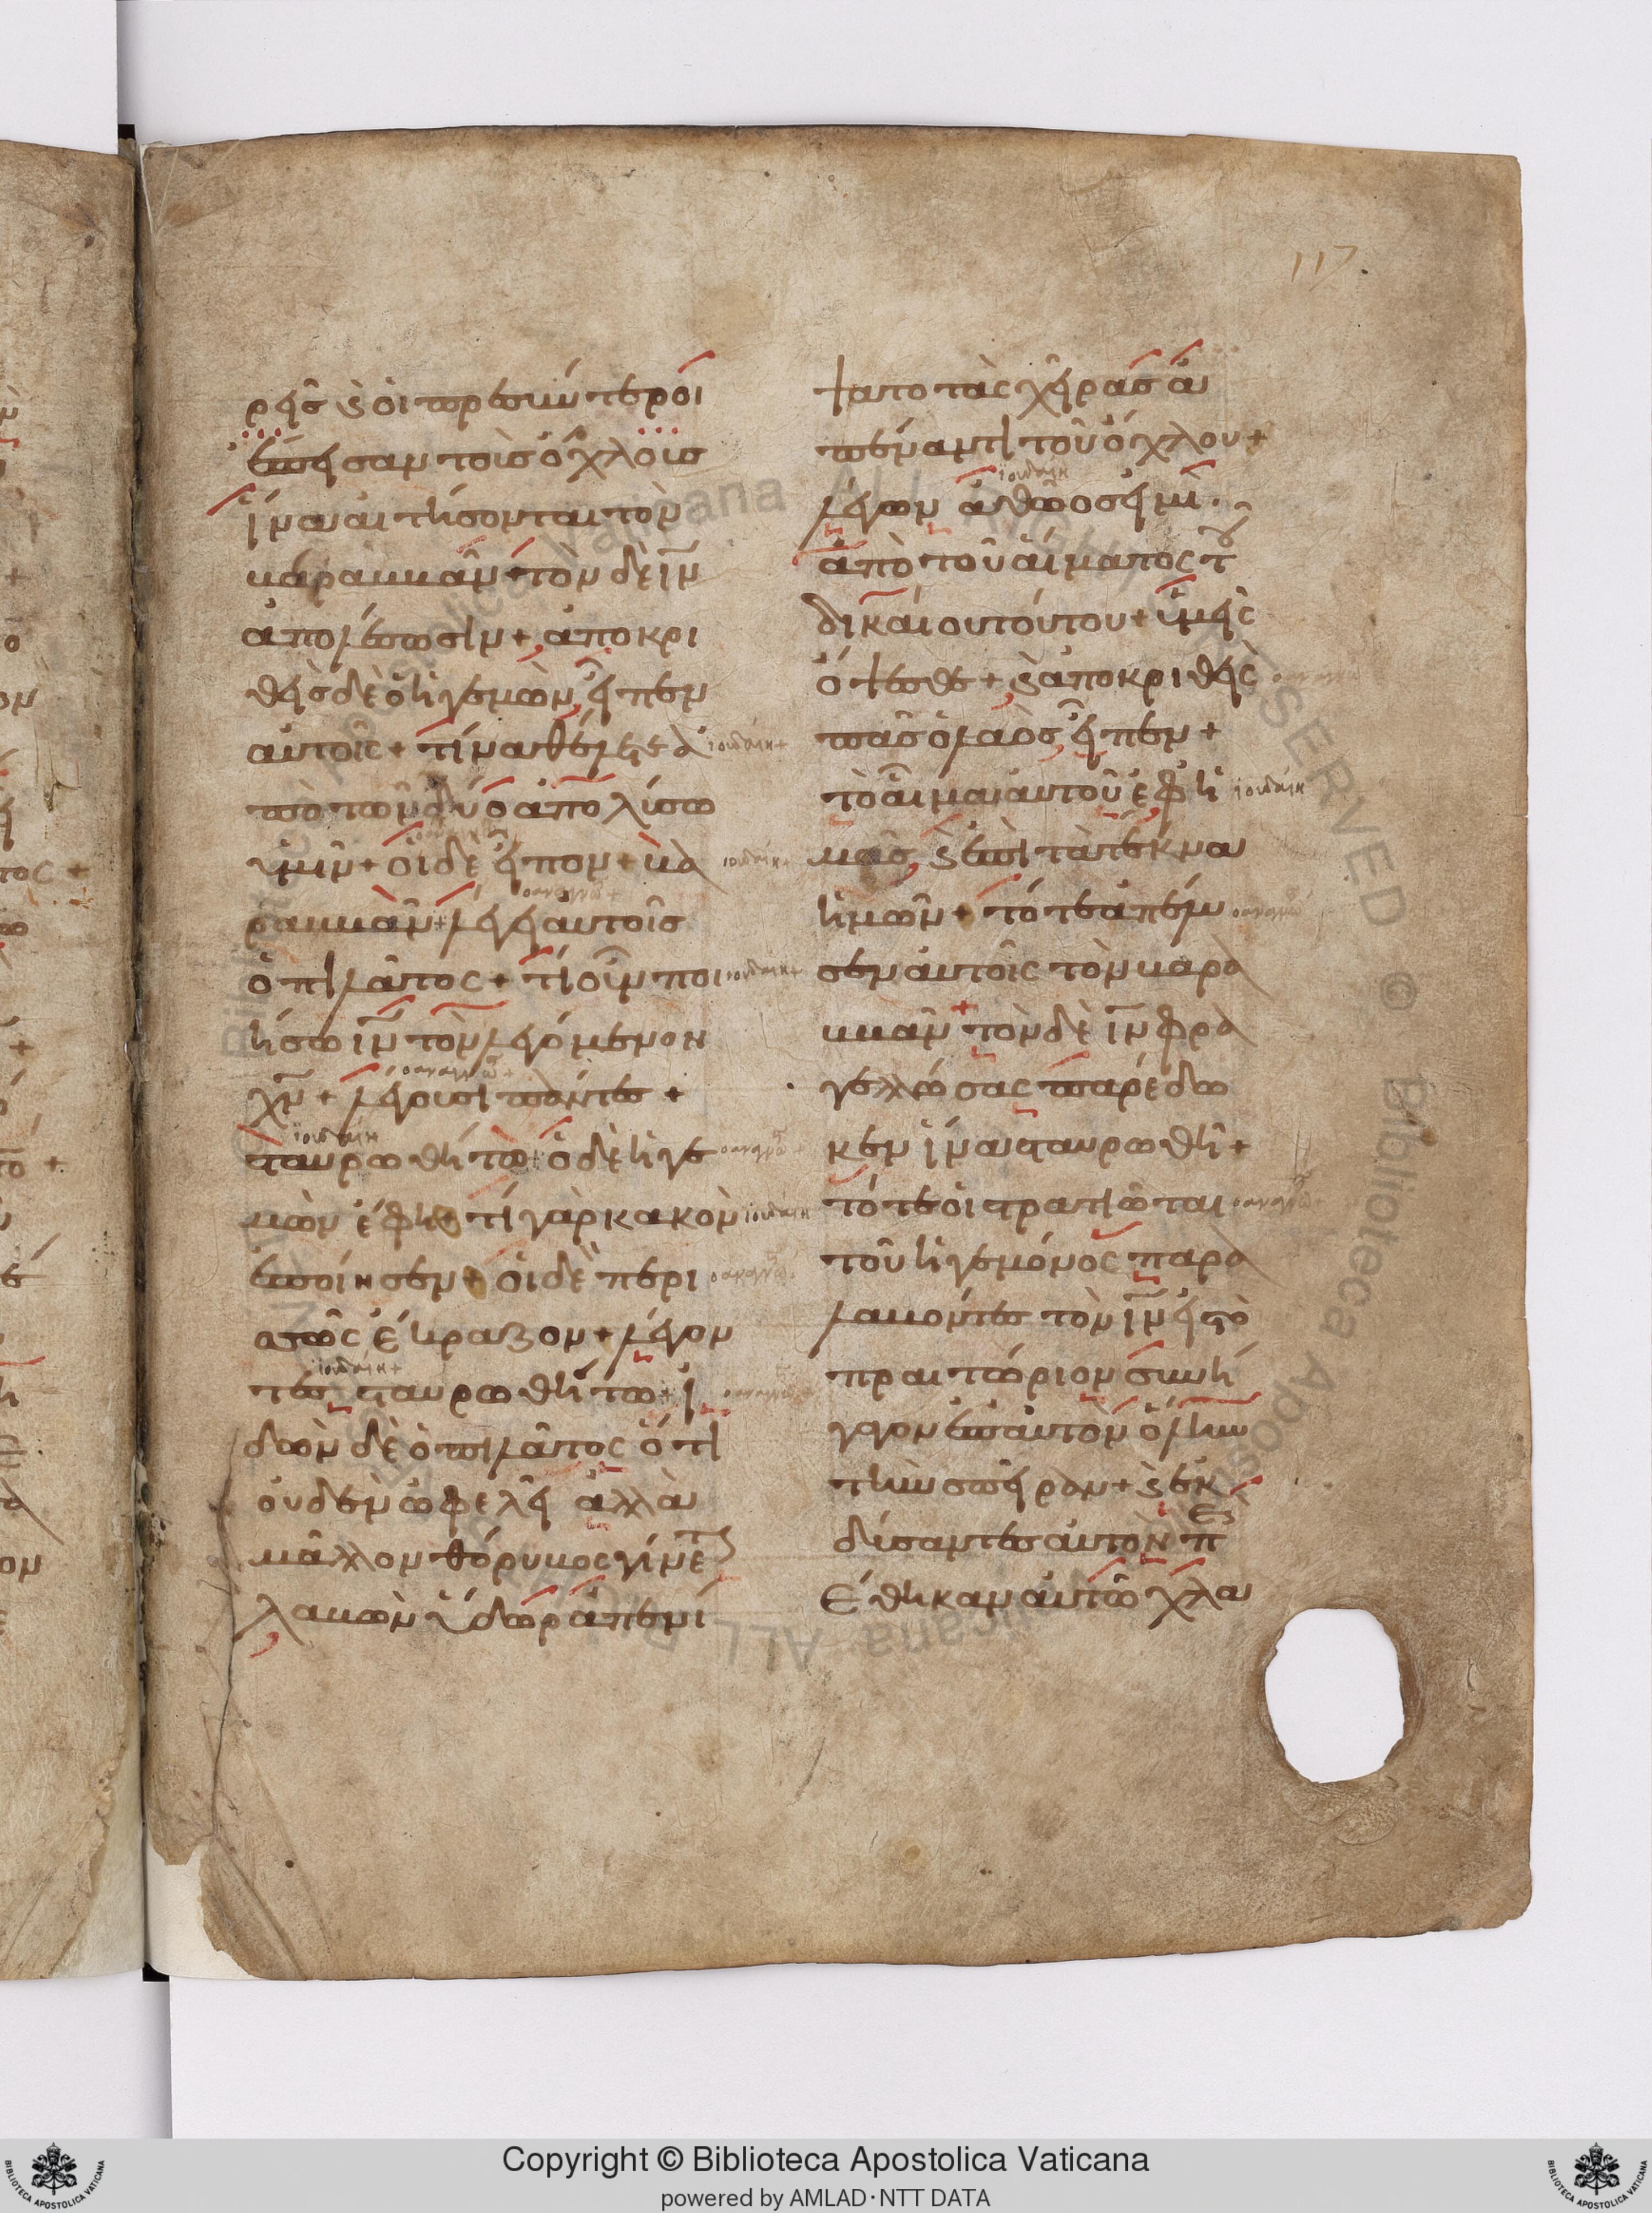 117
ρεῖσ ϗ οἱ πρεσβύτεροι
ἔπεισαν τοῖσ ὄχλοισ
ἵνα αἰτήσονται τὸν
βαραββᾶν + τὸν δὲ ιν̅
ἀπολέσωσιν + ἀποκρι
θεὶσ δὲ ὁ ἡγεμὼν εἶπεν
αὐτοῖς + τίνα θέλετε ἀ
πὸ τῶν δύο ἀπολύσω
ὑμῖν + οἱ δὲ εἶπον + βα
ραββᾶν + λέγει αὐτοῖσ
ὁ πιλᾶτος + τί οὖν ποι
ήσω ιν̅ τὸν λεγόμενον
χν̅ + λέγουσι πάντεσ +
σταυρωθήτω + ὁ δὲ ἡγε
μὼν ἔφη + τί γὰρ κακὸν
ἐποίησεν + οἱ δὲ περι
σσῶς ἔκραζον + λέγον
τεσ σταυρωθήτω + ἰ
δὼν δὲ ὁ πιλᾶτος ὅτι
οὐδὲν ὠφελεῖ ἀλλὰ
μᾶλλον θόρυβος γίνετ
λαβὼν ὕδωρ ἀπενί
ψατο τὰς χεῖρασ ἀ
πέναντι τοῦ ὄχλου +
λέγων ἀθῶοσ εἰμὶ
ἀπὸ τοῦ αἵματος τ
δικαίου τούτου + ὑμεῖς
ὄψεσθε + ϗ ἀποκριθεὶς
πᾶσ ὁ λαὸσ εἶπεν +
τὸ αἷμα αὐτοῦ ἐφ ἡ
μᾶσ ϗ ἐπὶ τὰ τέκνα
ἡμῶν + τότε ἀπέλυ
σεν αὐτοῖς τὸν βαρα
ββᾶν + τὸν δὲ ιν̅ φρα
γελλώσας παρέδω
κεν ἵνα σταυρωθῆ +
τότε οἱ στρατιῶται
τοῦ ἡγεμόνος παρα
λαβόντεσ τὸν ιν̅ εἰσ τὸ
πραιτώριον συνή
γαγον ἐπ αὐτὸν ὅλην
τὴν σπεῖραν + ϗ ἐκ
δύσαντεσ αὐτὸν π
έθηκαν αὐτῶ χλα
Copyright © Biblioteca Apostolica Vaticana
powered by AMLAD·NTT DATA